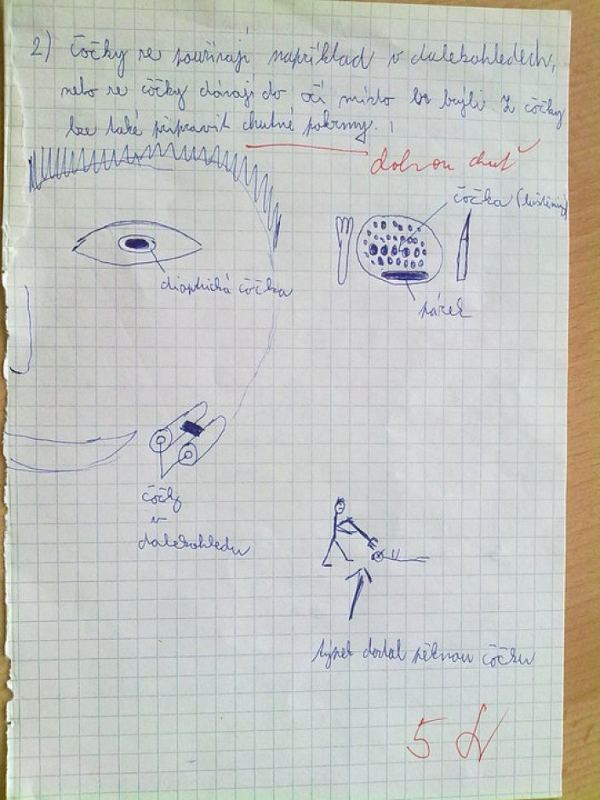 2) čočky se používají například v dalekohledech,
nebo se čočky dávají do očí místo brýlí. Z čočky
lze také připravit chutné pokrmy.
dobrou chuť
čočka (luštěniny)
dioptrická čočka
párek
čočky
v
dalekohledu
týpek dostal pěknou čočku
5